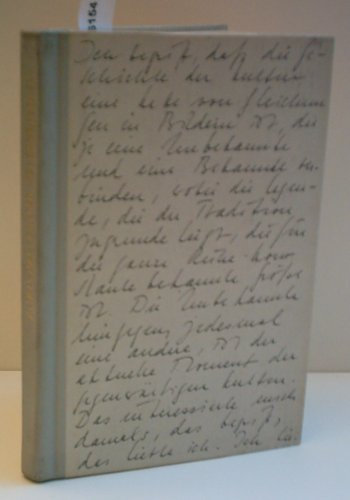 6154
begriff, daß die Ge-
schichte der Kultur
eine Kette von Gleichun-
gen in Bildern ist, die
je eine Unbekannte
und eine Bekannte ver-
binden, wobei die Legen-
de, die der Tradition
zugrunde liegt, die für
die ganze Reihe kon-
stante bekannte Größe
ist. Die Unbekannte
hingegen, jedesmal
eine andere, ist der
aktuelle Moment der
gegenwärtigen Kultur.
Das interessierte mich
damals, das begriff,
das liebte ich. Ich lie-